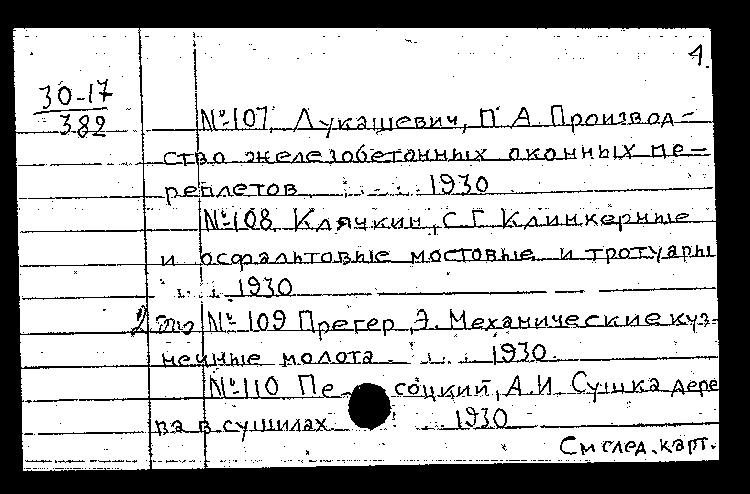 4.
30-17
382
№107. Лукашевич, П.А. Производ-
ство железобетонных оконных пе-
реплетов . . . . 1930
№108 Клячкин, С.Г. Клинкерные
и асфальтовые мостовые и тротуары
. . . . 1930
2 №109 Прегер, Э. Механические куз-
нечные молота . . . 1930.
№110 Пе соцкий, А.И. Сушка дере
ва в сушилах . . . 1930
См след. карт.